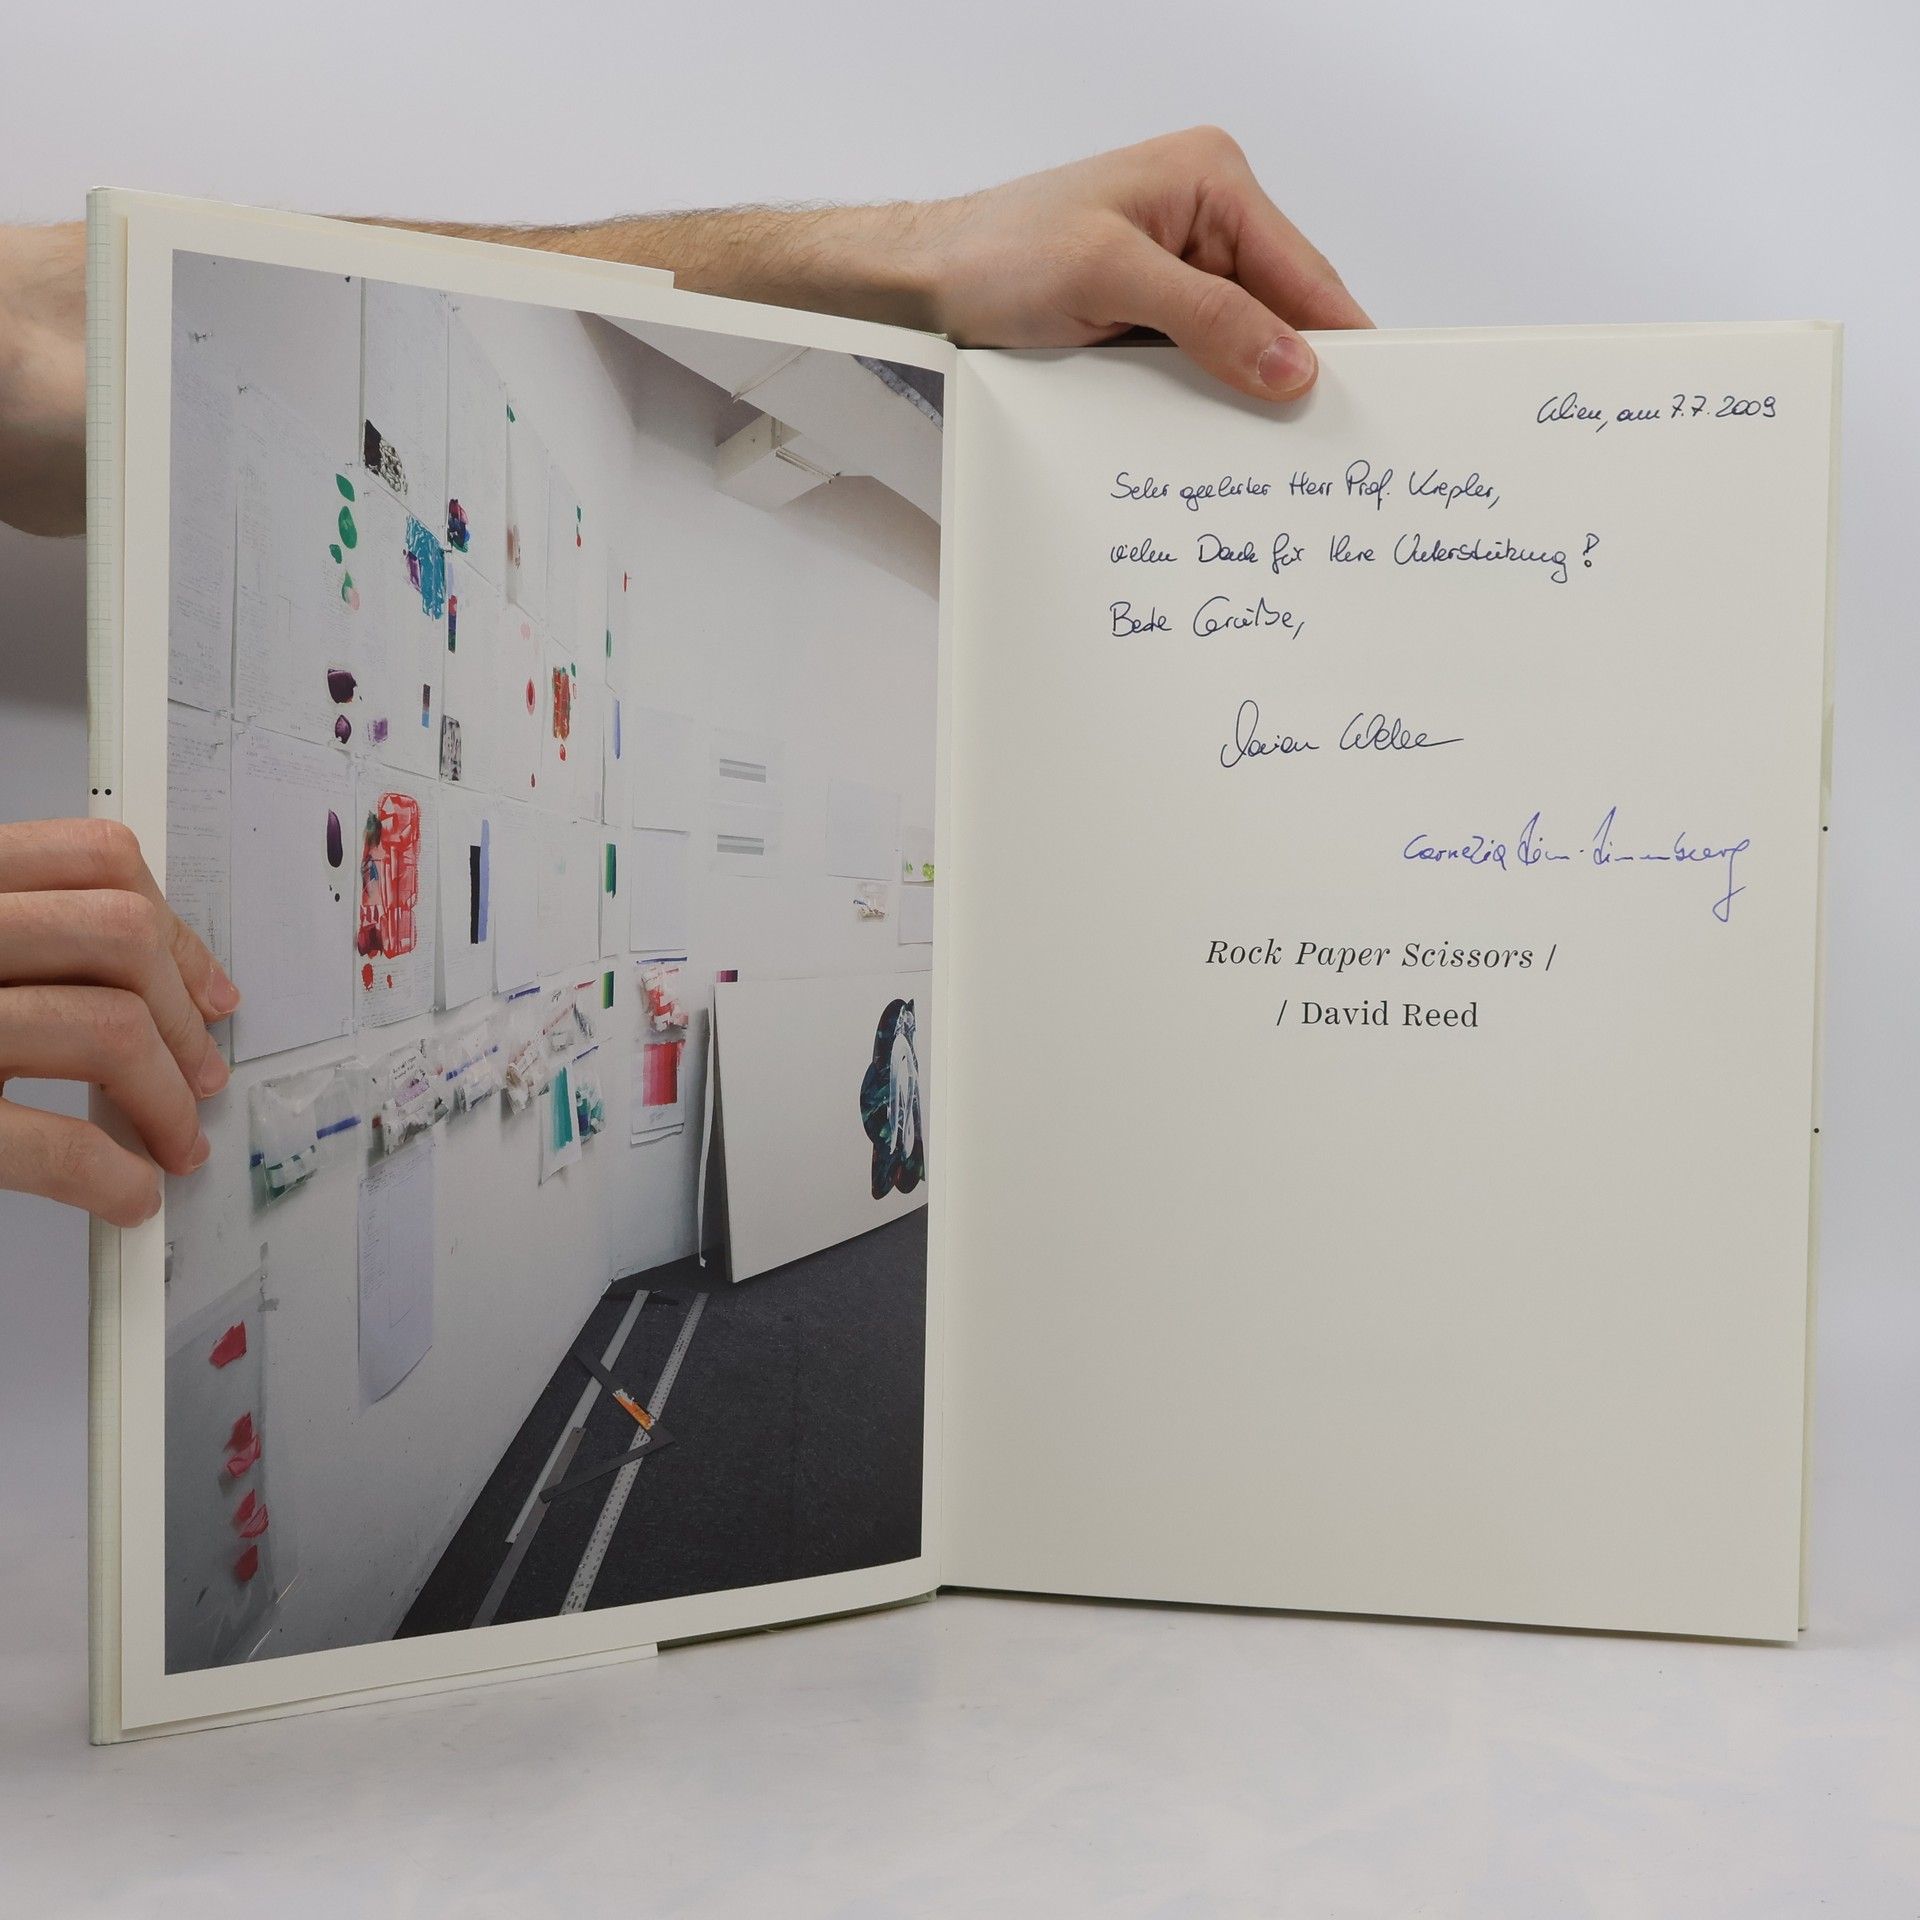 Wien, am 7.7.2009
Sehr geehrter Herr Prof. Krepler,
vielen Dank für Ihre Unterstützung!
Beste Grüße,
Cornelia
Rock Paper Scissors /
/ David Reed